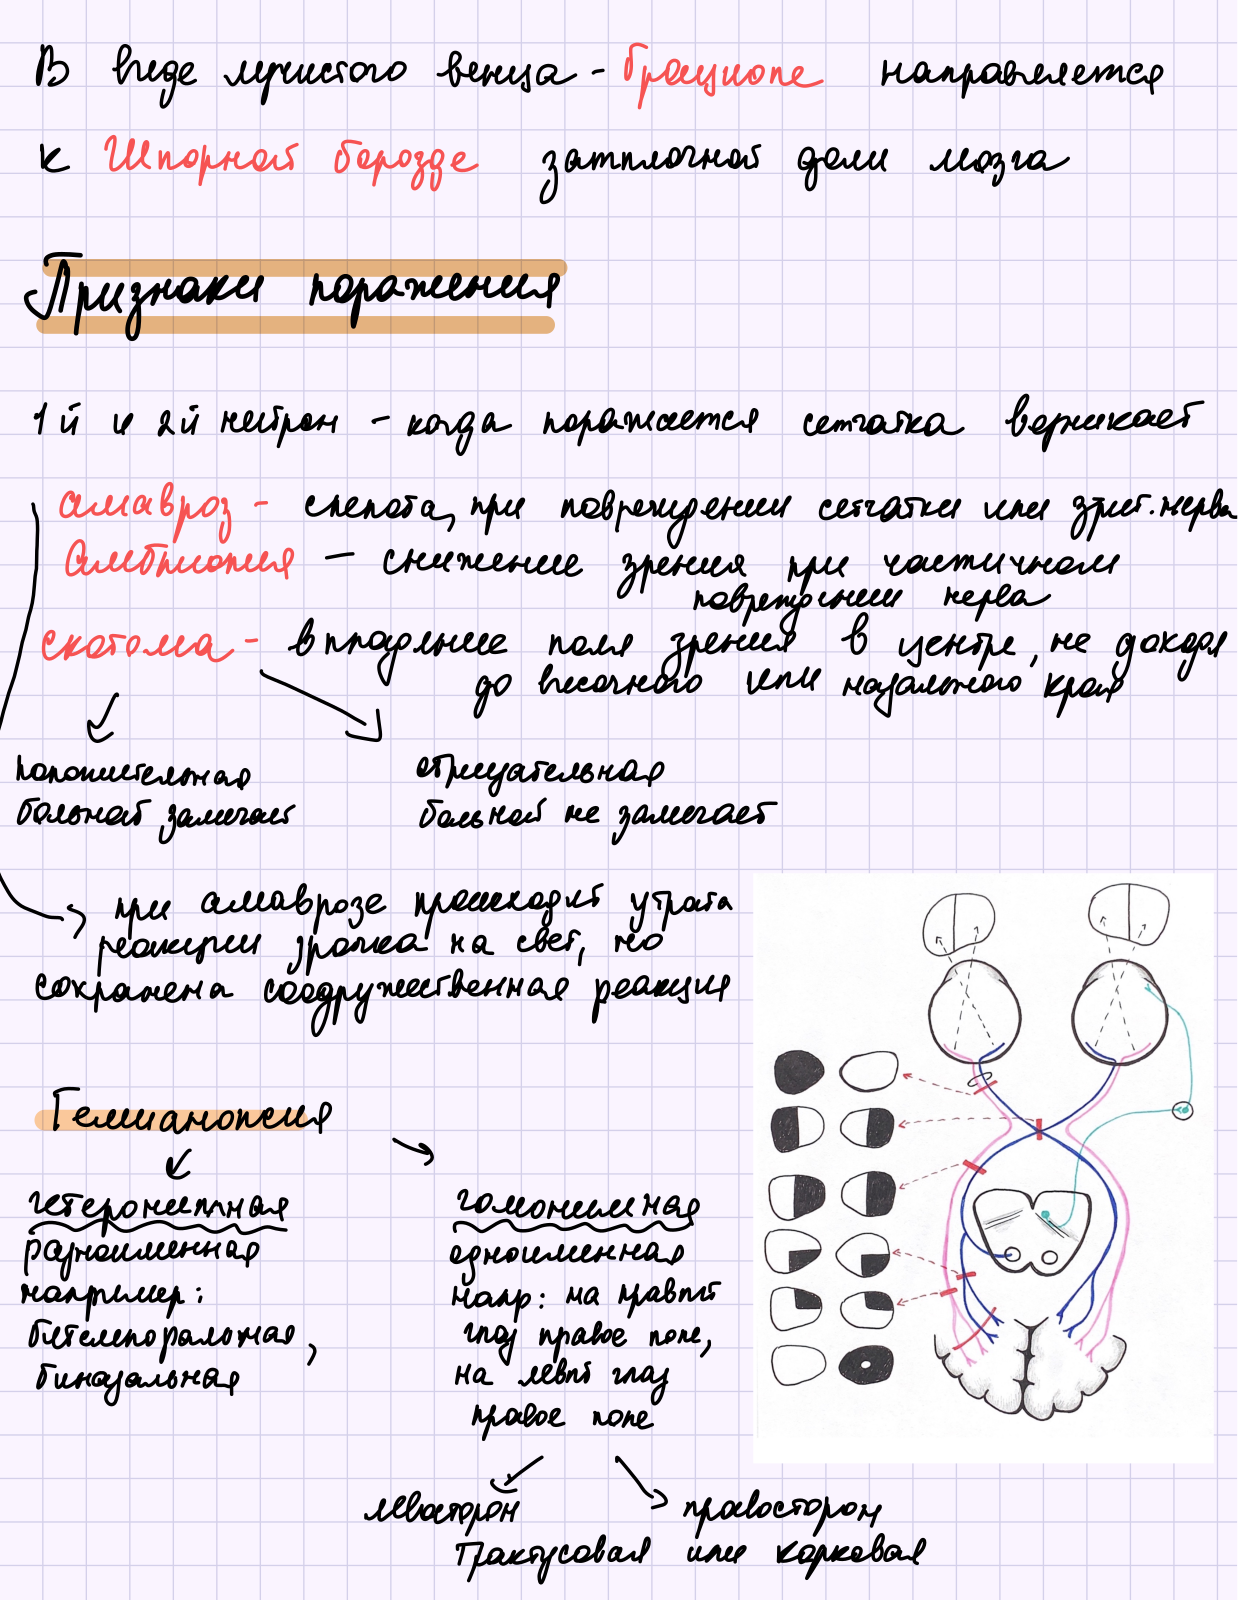 В виде лучистого венца - Грациоле направляется
к Шпорной борозде затылочной доли мозга
Признаки поражения
1й и 2й нейрон - когда поражается сетчатка возникает
амавроз - слепота, при повреждении сетчатки или зрит. нерва
Амблиопия - снижение зрения при частичном
повреждении нерва
скотома - выпадение поля зрения в центре, не доходя
до височного или назального края
положительная
больной замечает
отрицательная
больной не замечает
при амаврозе происходит утрата
реакции зрачка на свет, но
сохранена содружественная реакция
Гемианопсия
гетеронимная
разноименная
например:
битемпоральная,
биназальная
гомонимная
одноименная
напр: на правый
глаз правое поле,
на левый глаз
правое поле
левосторон
правосторон
Трактусовая или корковая